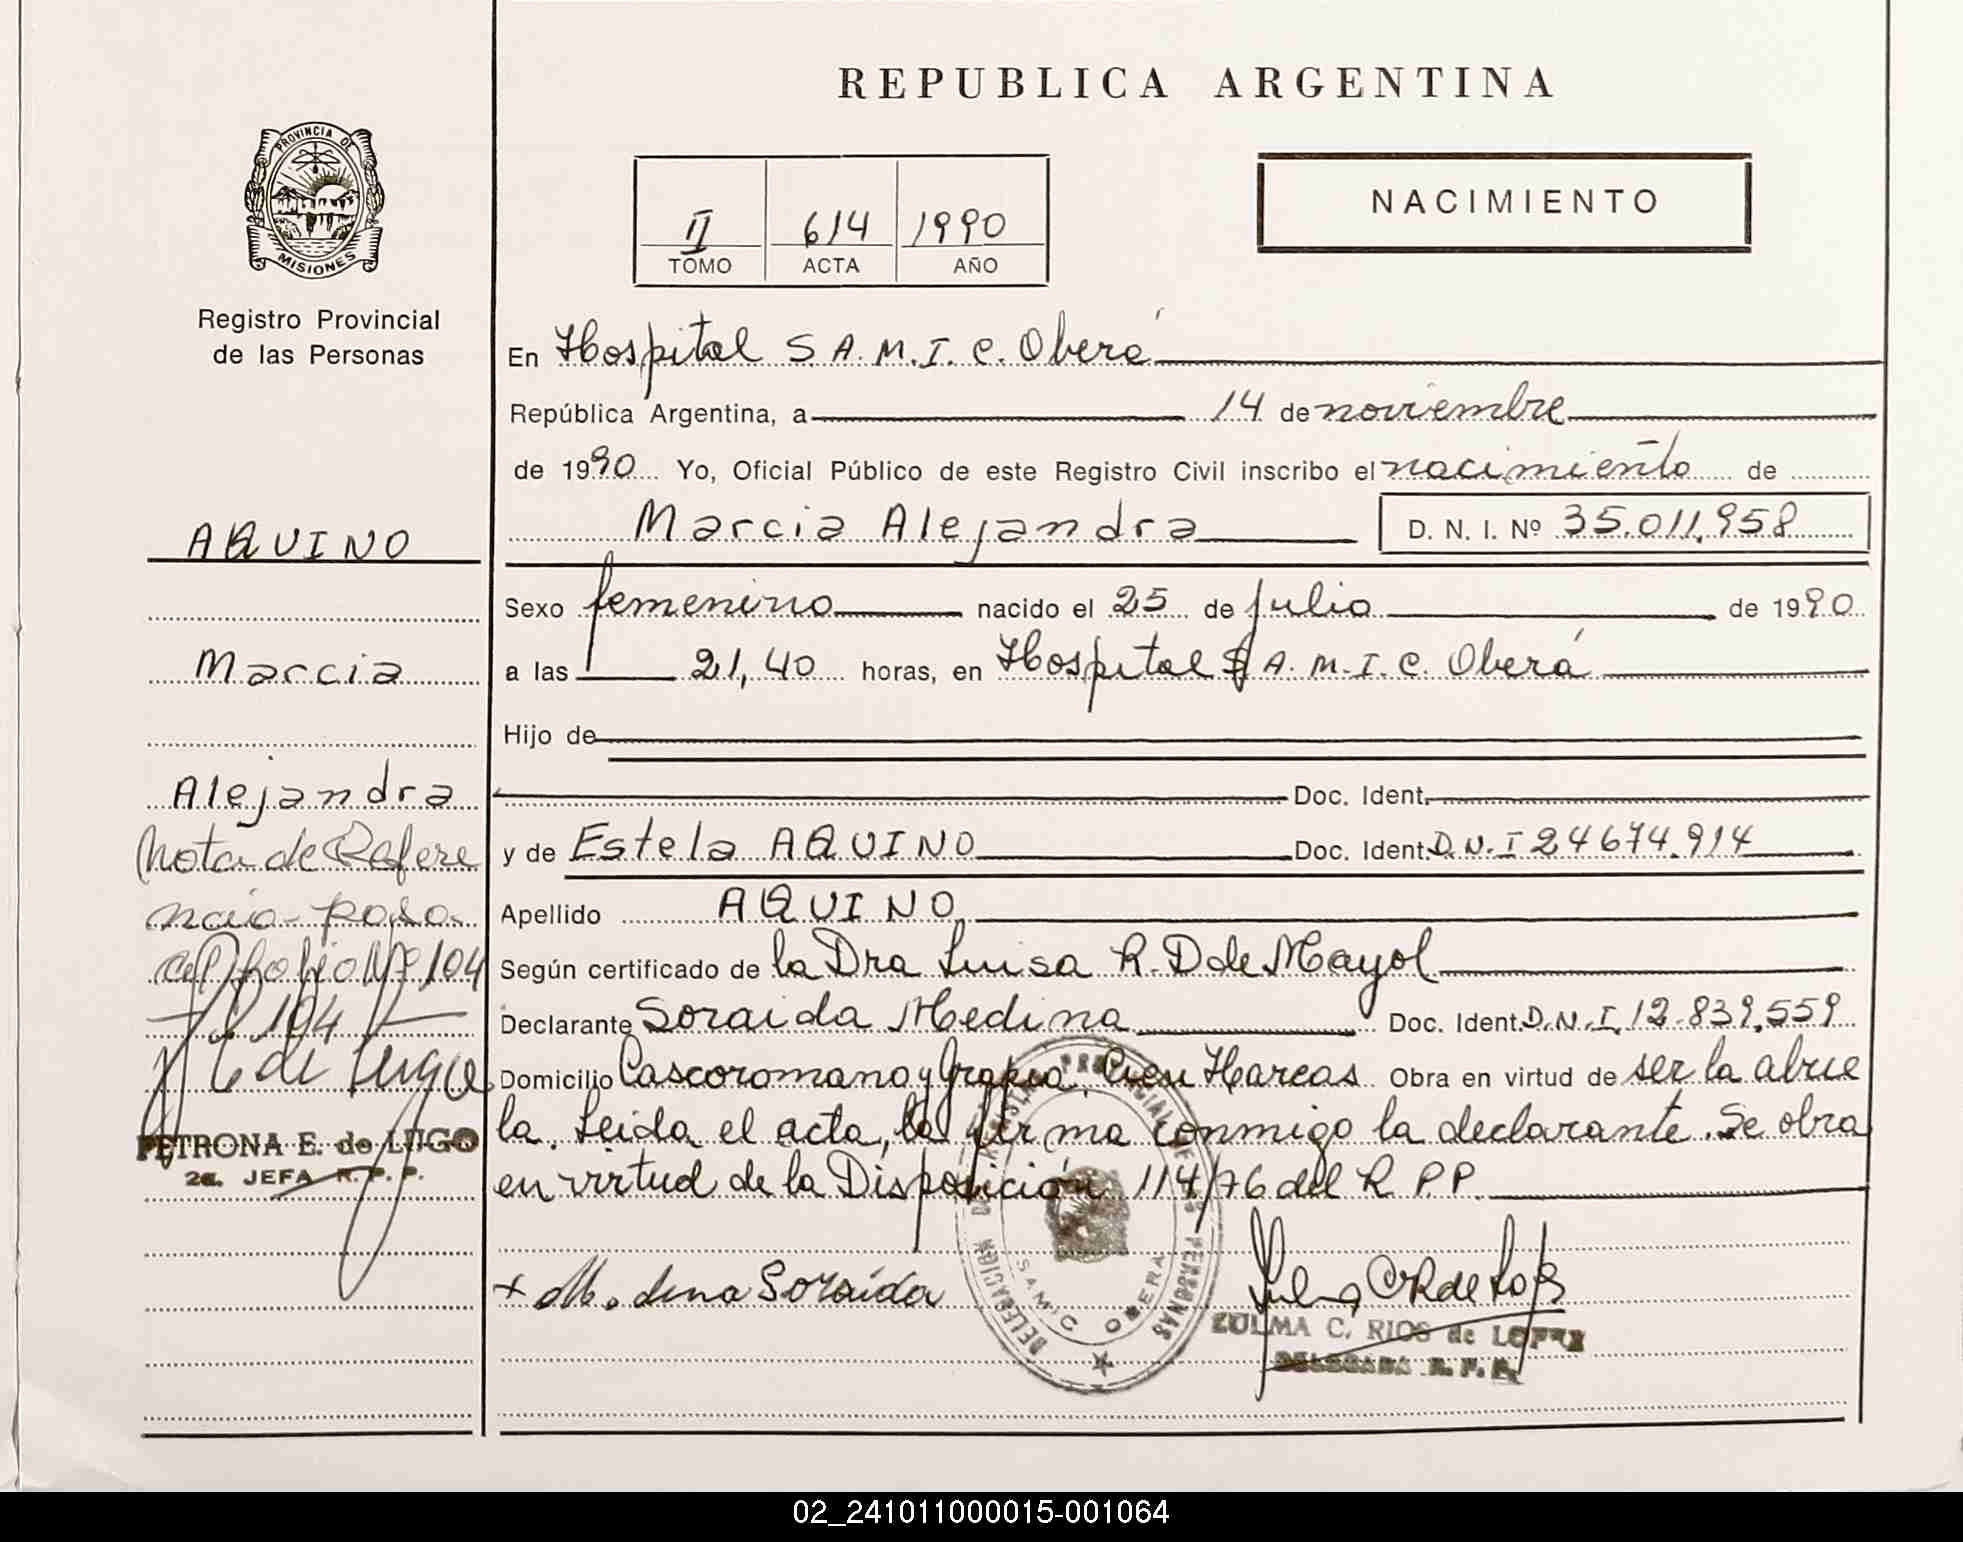 REPUBLICA ARGENTINA
PROVINCIA DE
MISIONES
Registro Provincial
de las Personas
II 614 1990
TOMO ACTA AÑO
NACIMIENTO
En Hospital S.A.M.I.C. Oberá
República Argentina, a 14 de noviembre
de 1990 Yo, Oficial Público de este Registro Civil inscribo el nacimiento de
Marcia Alejandra D. N. I. Nº 35.011.958
Sexo femenino nacido el 25 de julio de 1990
a las 21,40 horas, en Hospital S A.M.I.C. Oberá
Hijo de
Doc. Ident.
y de Estela AQUINO Doc. Ident. D.N.I 24674.914
Apellido AQUINO
Según certificado de la Dra Luisa R. D de Mayol
Declarante Soraida Medina Doc. Ident. D.N.I. 12.839.559
Domicilio Cascoromano y Cien Harcas Obra en virtud de ser la abue
la. Leida el acta, la firma conmigo la declarante. Se obra
en virtud de la Disposición 114/76 del R.P.P.
+ Medina Soraida
ZULMA C. RIOS de LOPEZ
DELEGADA R. P. P.
DELEGACION DEL REGISTRO PROVINCIAL DE LAS PERSONAS
SAMIC OBERA
AQUINO
Marcia
Alejandra
Nota de Refere
ncia - pasa
al folio Nº 104
PETRONA E. de LUGO
2a. JEFA R. P. P.
02_241011000015-001064